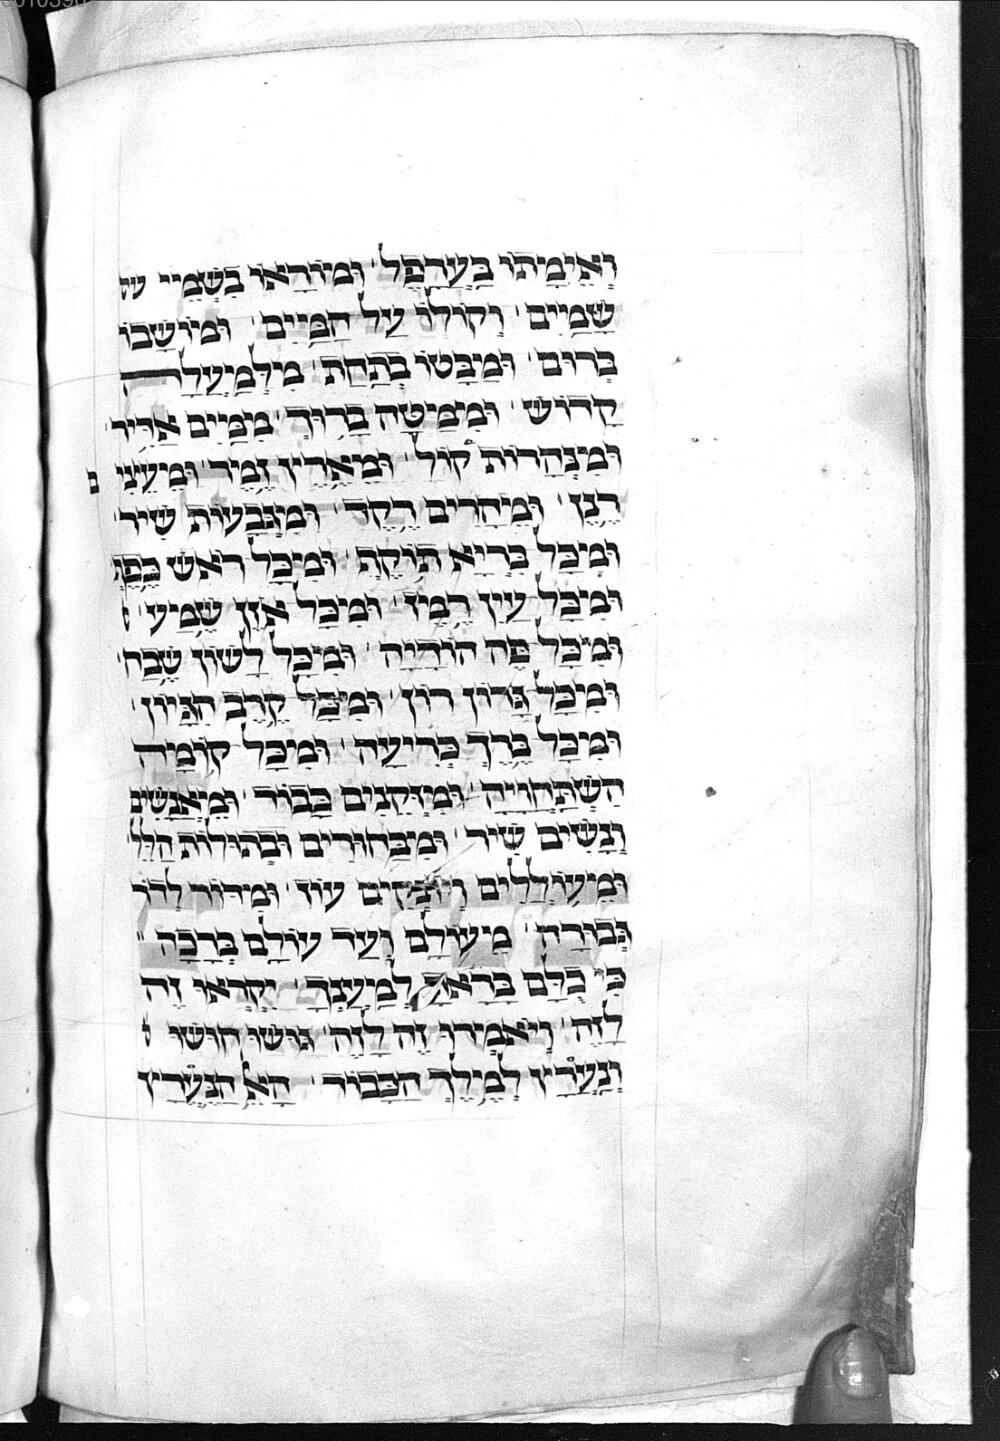 וְאֵימָתוֹ בָּעֲרָפֶל׳ וּמוֹרָאוֹ בִּשְׁמֵיי
שָׁמַיִם׳ וְקוֹלוֹ עַל הַמַּיִם׳ וּמוֹשָׁבוֹ
בָּרוּם׳ וּמַבָּטוֹ בְּתַחַת׳ מִלְמַעְלָה
קָדוֹשׁ׳ וּמִמַּטָּה בָרוּךְ׳ מִמַּיִם אַדִּיר׳
וּמִנְּהָרוֹת קוֹל׳ וּמֵאֶרֶץ זֶמֶר׳ וּמֵעֵצִי
רֶנֶן׳ וּמֵהָרִים רֶקֶד׳ וּמִגְּבָעוֹת שִׁיר׳
וּמִכָּל בְּרִיָּא תּוֹקֶף׳ וּמִכָּל רֹאשׁ
וּמִכָּל עַיִן רֶמֶז׳ וּמִכָּל אֹזֶן שֶׁמַע׳
וּמִכָּל פֶּה הוֹדָיָה׳ וּמִכָּל לָשׁוֹן שֶׁבַח׳
וּמִכָּל גָּרוֹן רוֹן׳ וּמִכָּל קֶרֶב הִגָּיוֹן׳
וּמִכָּל בֶּרֶךְ כְּרִיעָה׳ וּמִכָּל קוֹמָה
הִשְׁתַּחֲוָיָה׳ וּמִזְּקֵנִים כָּבוֹד׳ וּמֵאֲנָשִׁים
וְנָשִׁים שִׁיר׳ וּמִבַּחוּרִים וּבְתוּלוֹת הַלֵּל׳
וּמֵעוֹלְלִים וְיוֹנְקִים עוֹז׳ וּמִדּוֹר לְדֹר
גְּבוּרָה׳ מֵעוֹלָם וְעַד עוֹלָם בְּרָכָה׳׳
כִּי כֻלָּם בָּרָאתָ לְמַעֲנָךְ׳ יִקְרְאוּ זֶה
לָזֶה׳ וְיֹאמְרוּ זֶה לָזֶה׳ גּוֹשׁוּ חוּשׁוּ
וְנַעֲרִיץ לְמֶלֶךְ הַכָּבוֹד׳ הָאֵל הַנַּעֲרָץ